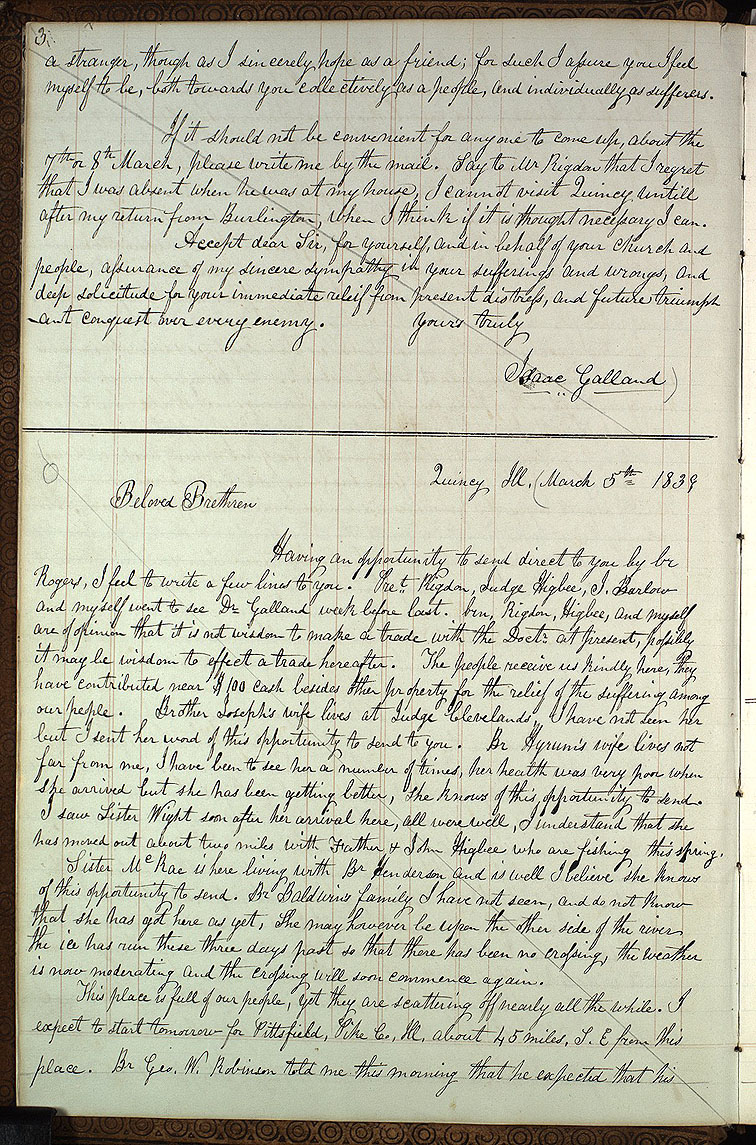 3.
a stranger, though as I sincerely hope as a friend; for such I assure you I feel
myself to be, both towards you collectively as a people, and individually as sufferers.
If it should not be convenient for any one to come up, about the
7th or 8th March, please write me by the mail. Say to Mr Rigdon that I regret
that I was absent when he was at my house, I cannot visit Quincy, untill
after my return from Burlington, when I think if it is thought necessary I can.
Accept dear Sir, for yourself, and in behalf of your Church and
people, assurance of my sincere sympathy in your sufferings and wrongs, and
deep solicitude for your immediate releif from present distress, and future triumph
ant conquest over every enemy. yours truly
Isaac Galland)
Quincy Ill, (March 5th 1839
Beloved Brethren
Having an opportunity to send direct to you by br
Rogers, I feel to write a few lines to you. Prest Rigdon, Judge Higbee, I. Barlow
and myself went to see Dr Galland week before last. brn, Rigdon, Higbee, and myself
are of opinion that it is not wisdom to make a trade with the Doctr at present, possibly
it may be wisdom to effect a trade hereafter. The people receive us kindly here, they
have contributed near $100 cash besides other property for the relief of the suffering among
our people. Brother Joseph's wife lives at Judge Clevelands", I have not seen her
but I sent her word of this opportunity to send to you. Br Hyrum's wife lives not
far from me, I have been to see her a number of times, her health was very poor when
she arrived but she has been getting better, she knows of this opportunity to send.
I saw Sister Wight soon after her arrival here, all were well, I understand that she
has moved out about two miles with Father & John Higbee who are fishing this spring.
Sister McRae is here living with Br Henderson and is well I believe she knows
of this opportunity to send. Br Baldwin's family I have not seen, and do not know
that she has got here as yet, She may however be upon the other side of the river
the ice has run these three days past so that there has been no crossing, the weather
is now moderating and the crossing will soon commence again.
This place is full of our people, yet they are scattering off nearly all the while. I
expect to start tomorrow for Pittsfield, Pike Co, Ill, about 45 miles, S. E from this
place. Br Geo, W. Robinson told me this morning that he expected that his